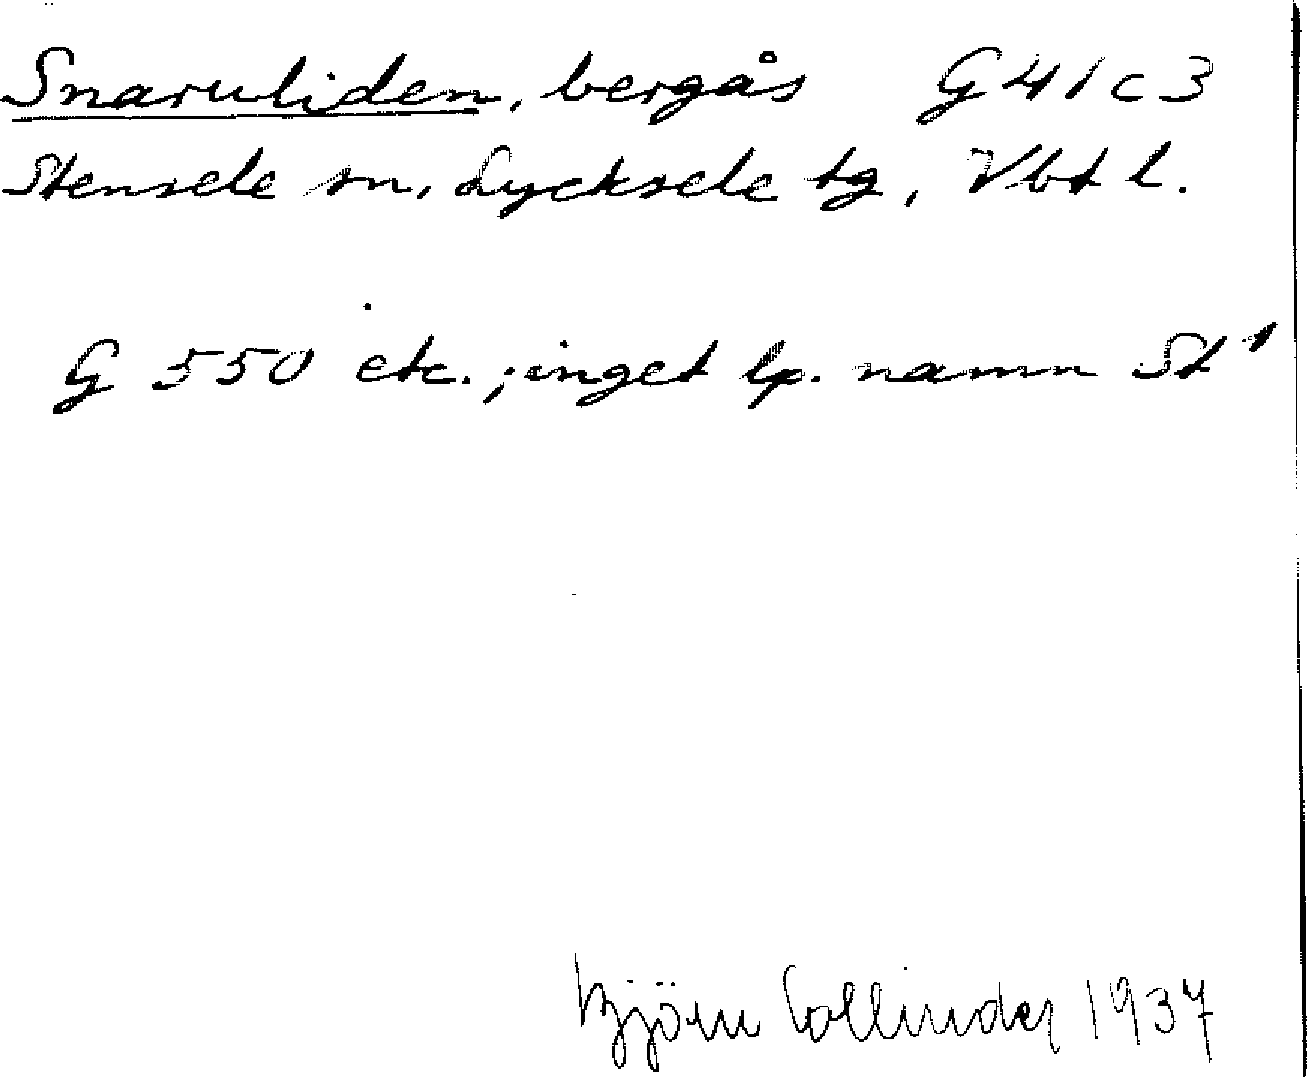 Snaruliden, bergås G41c3
Stensele sn, Lycksele tg, Vbt l.
G 550 etc.; inget lp. namn St¹
Björn Collinder 1937